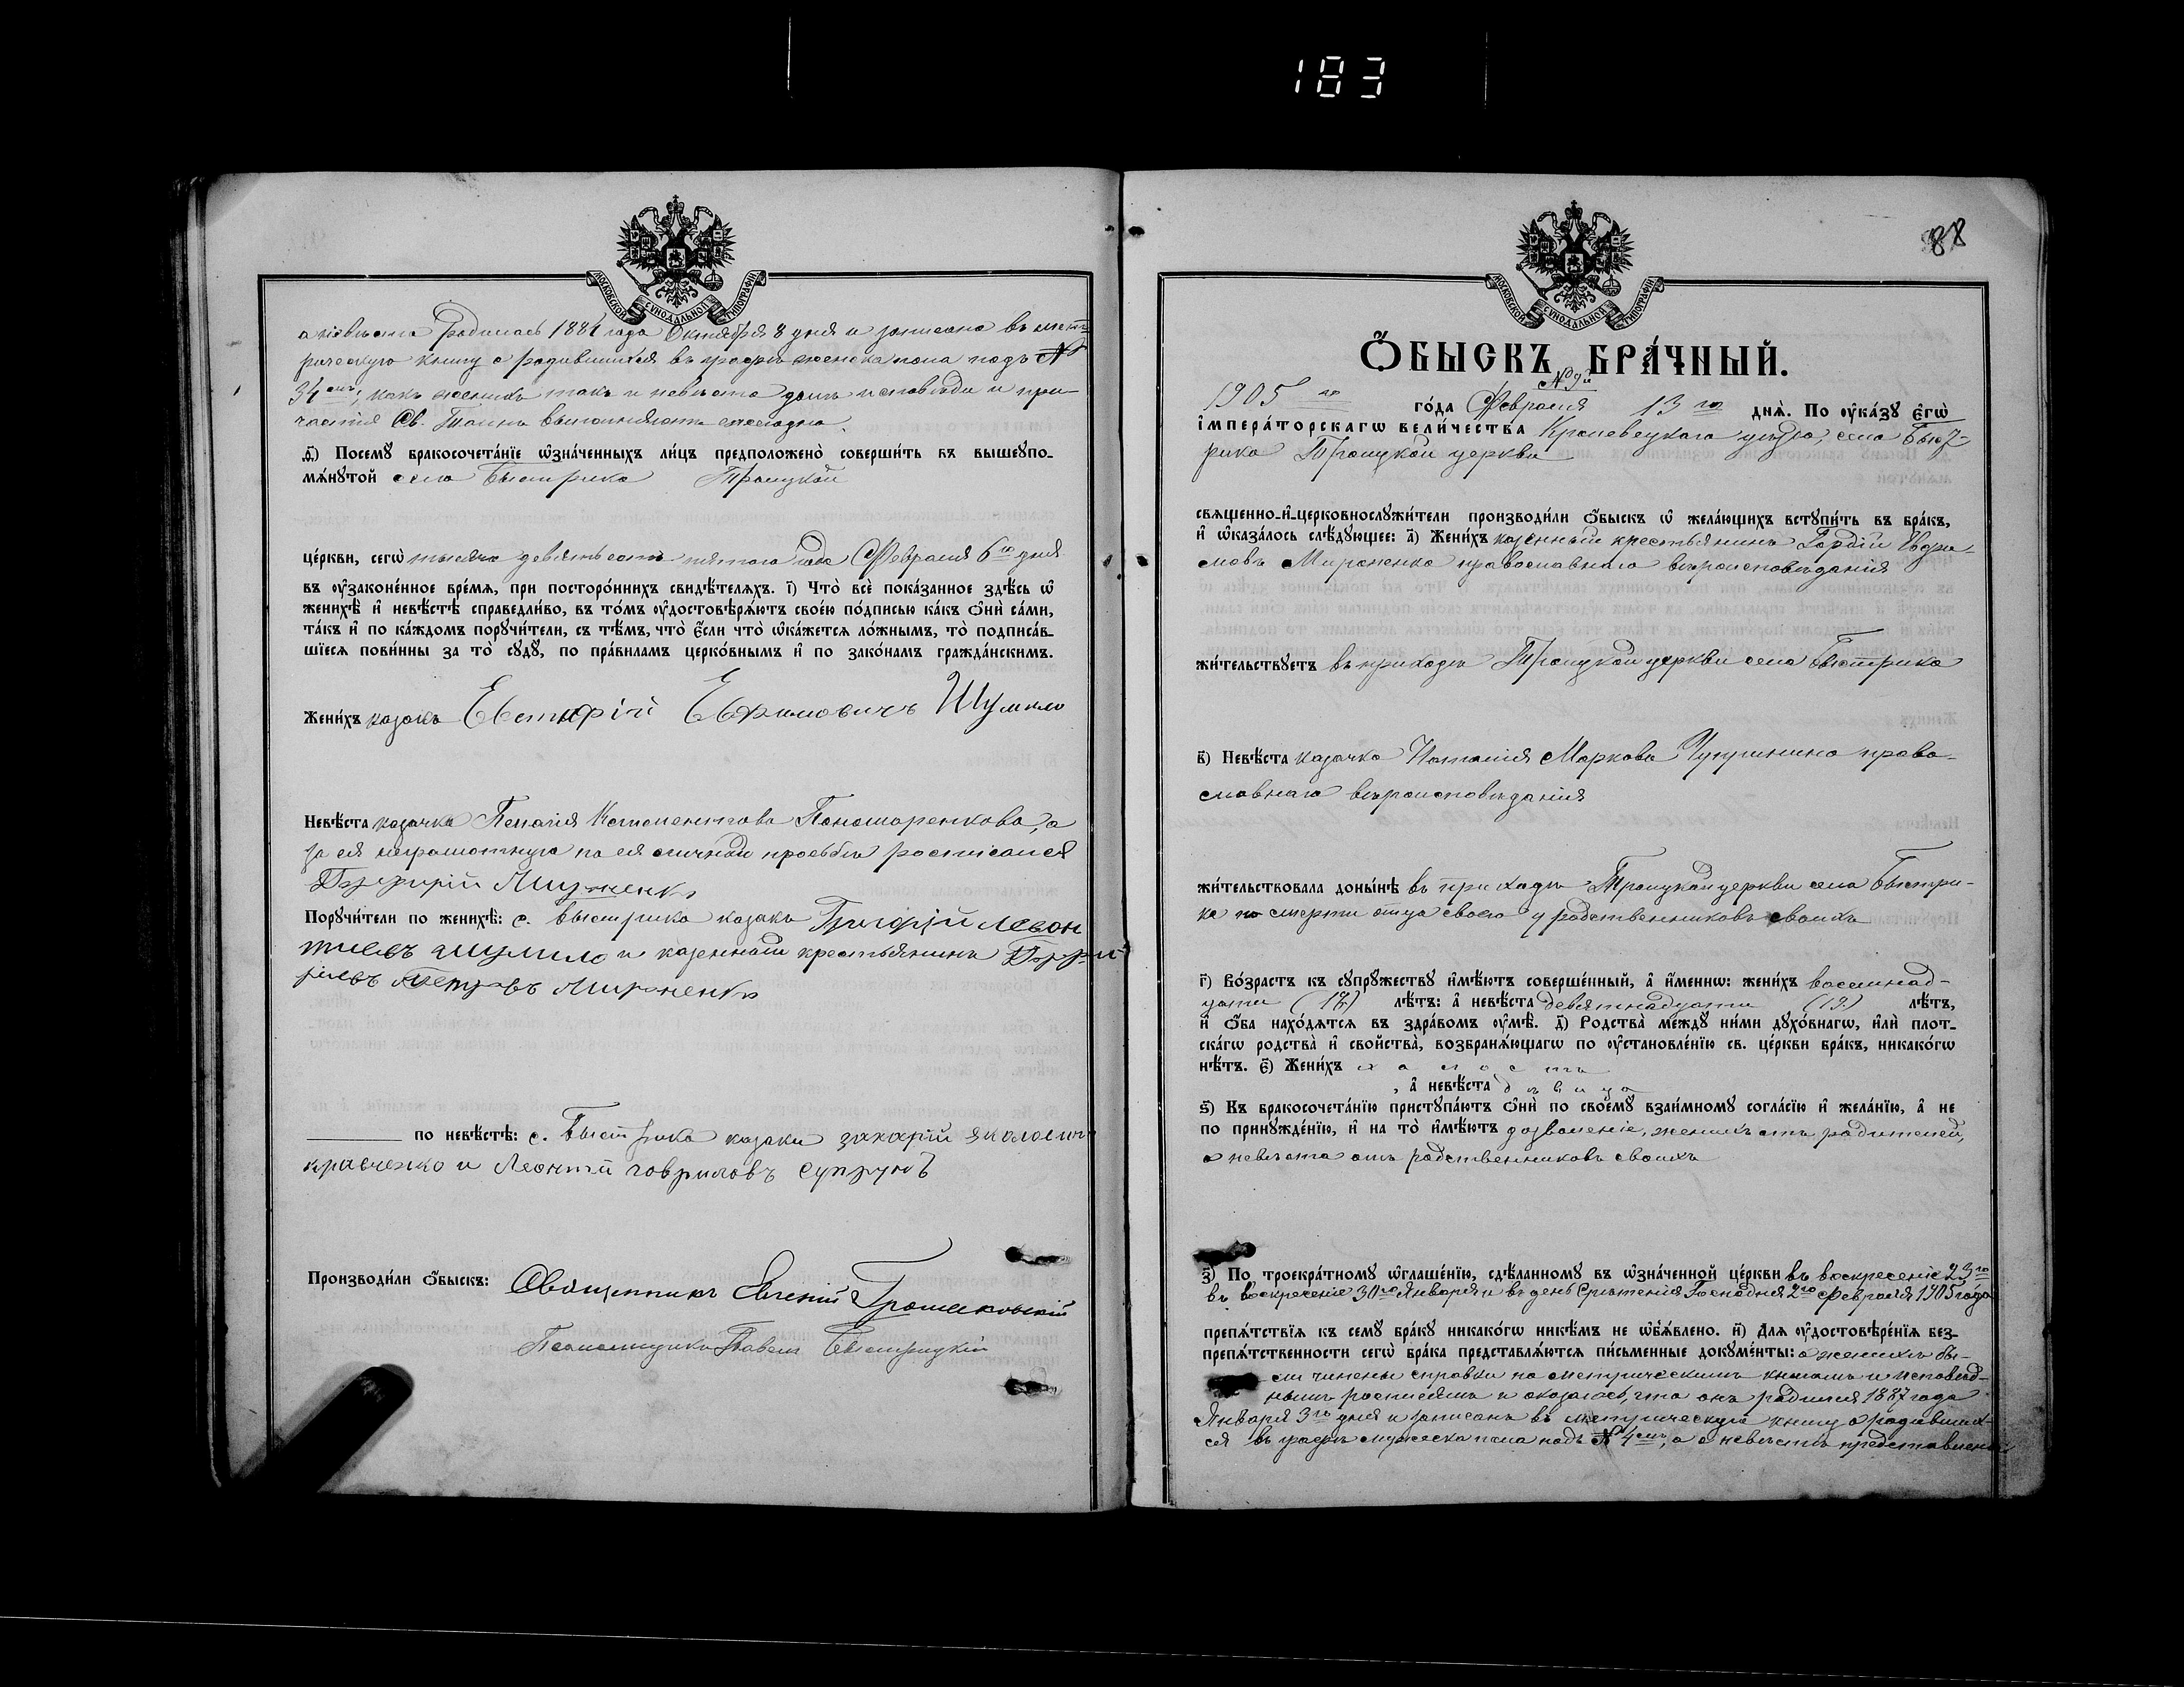 183
МОСКОВСКОЙ СУНОДАЛЬНОЙ ТИПОГРАФІИ
а невѣста родилась 1884 года Октября 8 дня и записана въ мет-
рическую книгу о родившихся въ графѣ женска пола подъ №
34 емъ; какъ женихъ такъ и невѣста долгъ исповѣди и при-
частія Св. Таинъ выполняютъ ежегодно.
ѳ҃) Посемꙋ бракосочета́нїе ѡ҆зна́ченныхъ ли́цъ предположено̀ соверши́ть въ вышеꙋпо-
мѧ́нꙋтой села Быстрика Троицкой
це́ркви, сегѡ̀ тысяча девятьсотъ пятаго года Февраля 6 го дня
въ ᲂу҆зако́ненное вре́мѧ, при посторо́ннихъ свидѣ́телѧхъ. і҃) Что̀ всѐ пока́занное здѣ́сь ѡ҆
женихѣ̀ и҆ невѣ́стѣ справедли́во, въ то́мъ ᲂу҆достовѣрѧ́ютъ свое́ю по́дписью ка́къ ѻ҆нѝ са́ми,
та́къ и҆ по ка́ждомъ порꙋчи́тели, съ тѣ́мъ, что̀ є҆́сли что̀ ѡ҆ка́жетсѧ ло́жнымъ, то̀ подписа́в-
шїесѧ пови́нны за то̀ сꙋдꙋ̀, по пра́виламъ церко́внымъ и҆ по зако́намъ гражда́нскимъ.
Жени́хъ казакъ Евстафій Евфимовичъ Шумило
Невѣ́ста казачка Пелагія Пономаренкова, а
за ея неграмотную по ея личной просьбѣ росписался
Мироненко
Порꙋчи́тели по женихѣ̀: с. Быстрика казакъ Григорій Леон
тіевъ Шумило и казенный крестьянинъ
Петровъ Мироненко
по невѣ́стѣ: с. Быстрика казаки Захарій
Кравченко и Леонтій Гавриловъ Супрунъ
Производи́ли ѻ҆́быскъ: Священникъ Евгеній Грошаковскій
Псаломщикъ Павелъ Быстрицкій
88
МОСКОВСКОЙ СУНОДАЛЬНОЙ ТИПОГРАФІИ
Ѻ҆́БЫСКЪ БРА́ЧНЫЙ.
№ 9й
1905 го го́да Февраля 13 го днѧ̀. По ᲂу҆ка́зꙋ Є҆гѡ̀
і҆мпера́торскагѡ вели́чества Кролевецкаго уѣзда, села Быст-
рика Троицкой церкви
свѧщенно-и҆-церковнослꙋжи́тели производи́ли ѻ҆́быскъ ѡ҆ жела́ющихъ встꙋпи́ть въ бра́къ,
и҆ ѡ҆каза́лось слѣ́дꙋющее: а҃) Жени́хъ казенный крестьянинъ Гордій Евфи-
мовъ Мироненко православнаго вѣроисповѣданія
жи́тельствꙋетъ въ приходѣ Троицкой церкви села Быстрика
в҃) Невѣ́ста казачка Наталія Маркова Чупринина право-
славнаго вѣроисповѣданія
жи́тельствовала доны́нѣ въ приходѣ Троицкой церкви села Быстри-
ка по смерти отца своего у родственниковъ своихъ
г҃) Во́зрастъ къ сꙋпрꙋ́жествꙋ и҆мѣ́ютъ соверше́нный, а҆ и҆́менно: жени́хъ восемнад-
цати (18) лѣ́тъ: а҆ невѣ́ста девятнадцати (19) лѣ́тъ,
и҆ ѻ҆́ба нахо́дѧтсѧ въ здра́вомъ ᲂу҆мѣ̀. д҃) Родства̀ междꙋ̀ ни́ми дꙋхо́внагѡ, и҆лѝ плот-
ска́гѡ родства̀ и҆ сво́йства̀, возбранѧ́ющагѡ по ᲂу҆становле́нїю св. це́ркви бра́къ, никако́гѡ
нѣ́тъ. є҃) Жени́хъ холостъ
, а҆ невѣ́ста дѣвица
ѕ҃) Къ бракосочета́нїю пристꙋпа́ютъ ѻ҆нѝ по своемꙋ̀ взаи́мномꙋ согла́сїю и҆ жела́нїю, а҆ не
по принꙋжде́нїю, и҆ на то̀ и҆мѣ́ютъ дозволеніе, женихъ отъ родителей,
а невѣста отъ родственниковъ своихъ
з҃) По троекра́тномꙋ ѡ҆глаше́нїю, сдѣ́ланномꙋ въ ѡ҆зна́ченной це́ркви въ воскресеніе 23 го
въ воскресеніе 30 го Января и въ день Срѣтенія Господня 2 го Февраля 1905 года
препѧ́тствїѧ къ семꙋ̀ бра́кꙋ никако́гѡ никѣ́мъ не ѡ҆б̾ѧ́влено. и҃) Для ᲂу҆достовѣре́нїѧ без-
препѧ́тственности сегѡ̀ бра́ка представлѧ́ютсѧ пи́сьменные докꙋме́нты: о женихѣ бы-
ли чинены справки по метрическимъ книгамъ и исповѣд-
нымъ росписямъ и оказалось, что онъ родился 1887 года
Января 3 го дня и записанъ въ метрическую книгу о родивших-
ся въ графѣ мужеска пола подъ № 4 емъ, а о невѣстѣ представлена